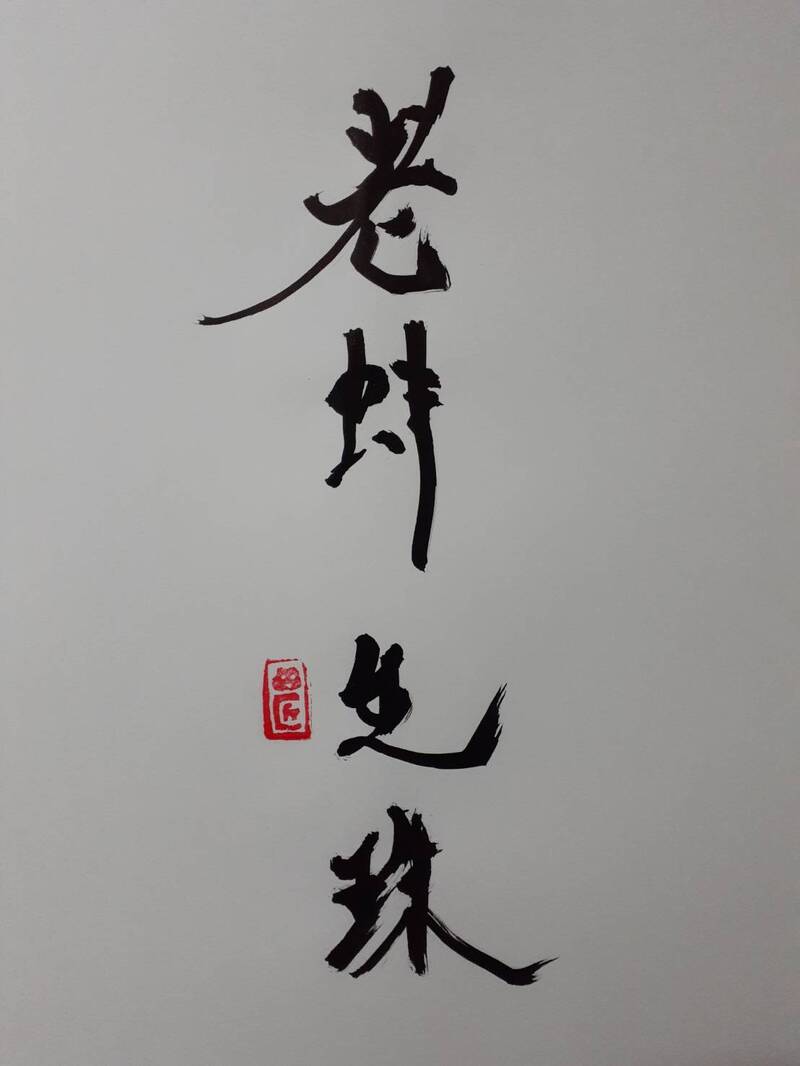 老蚌生珠